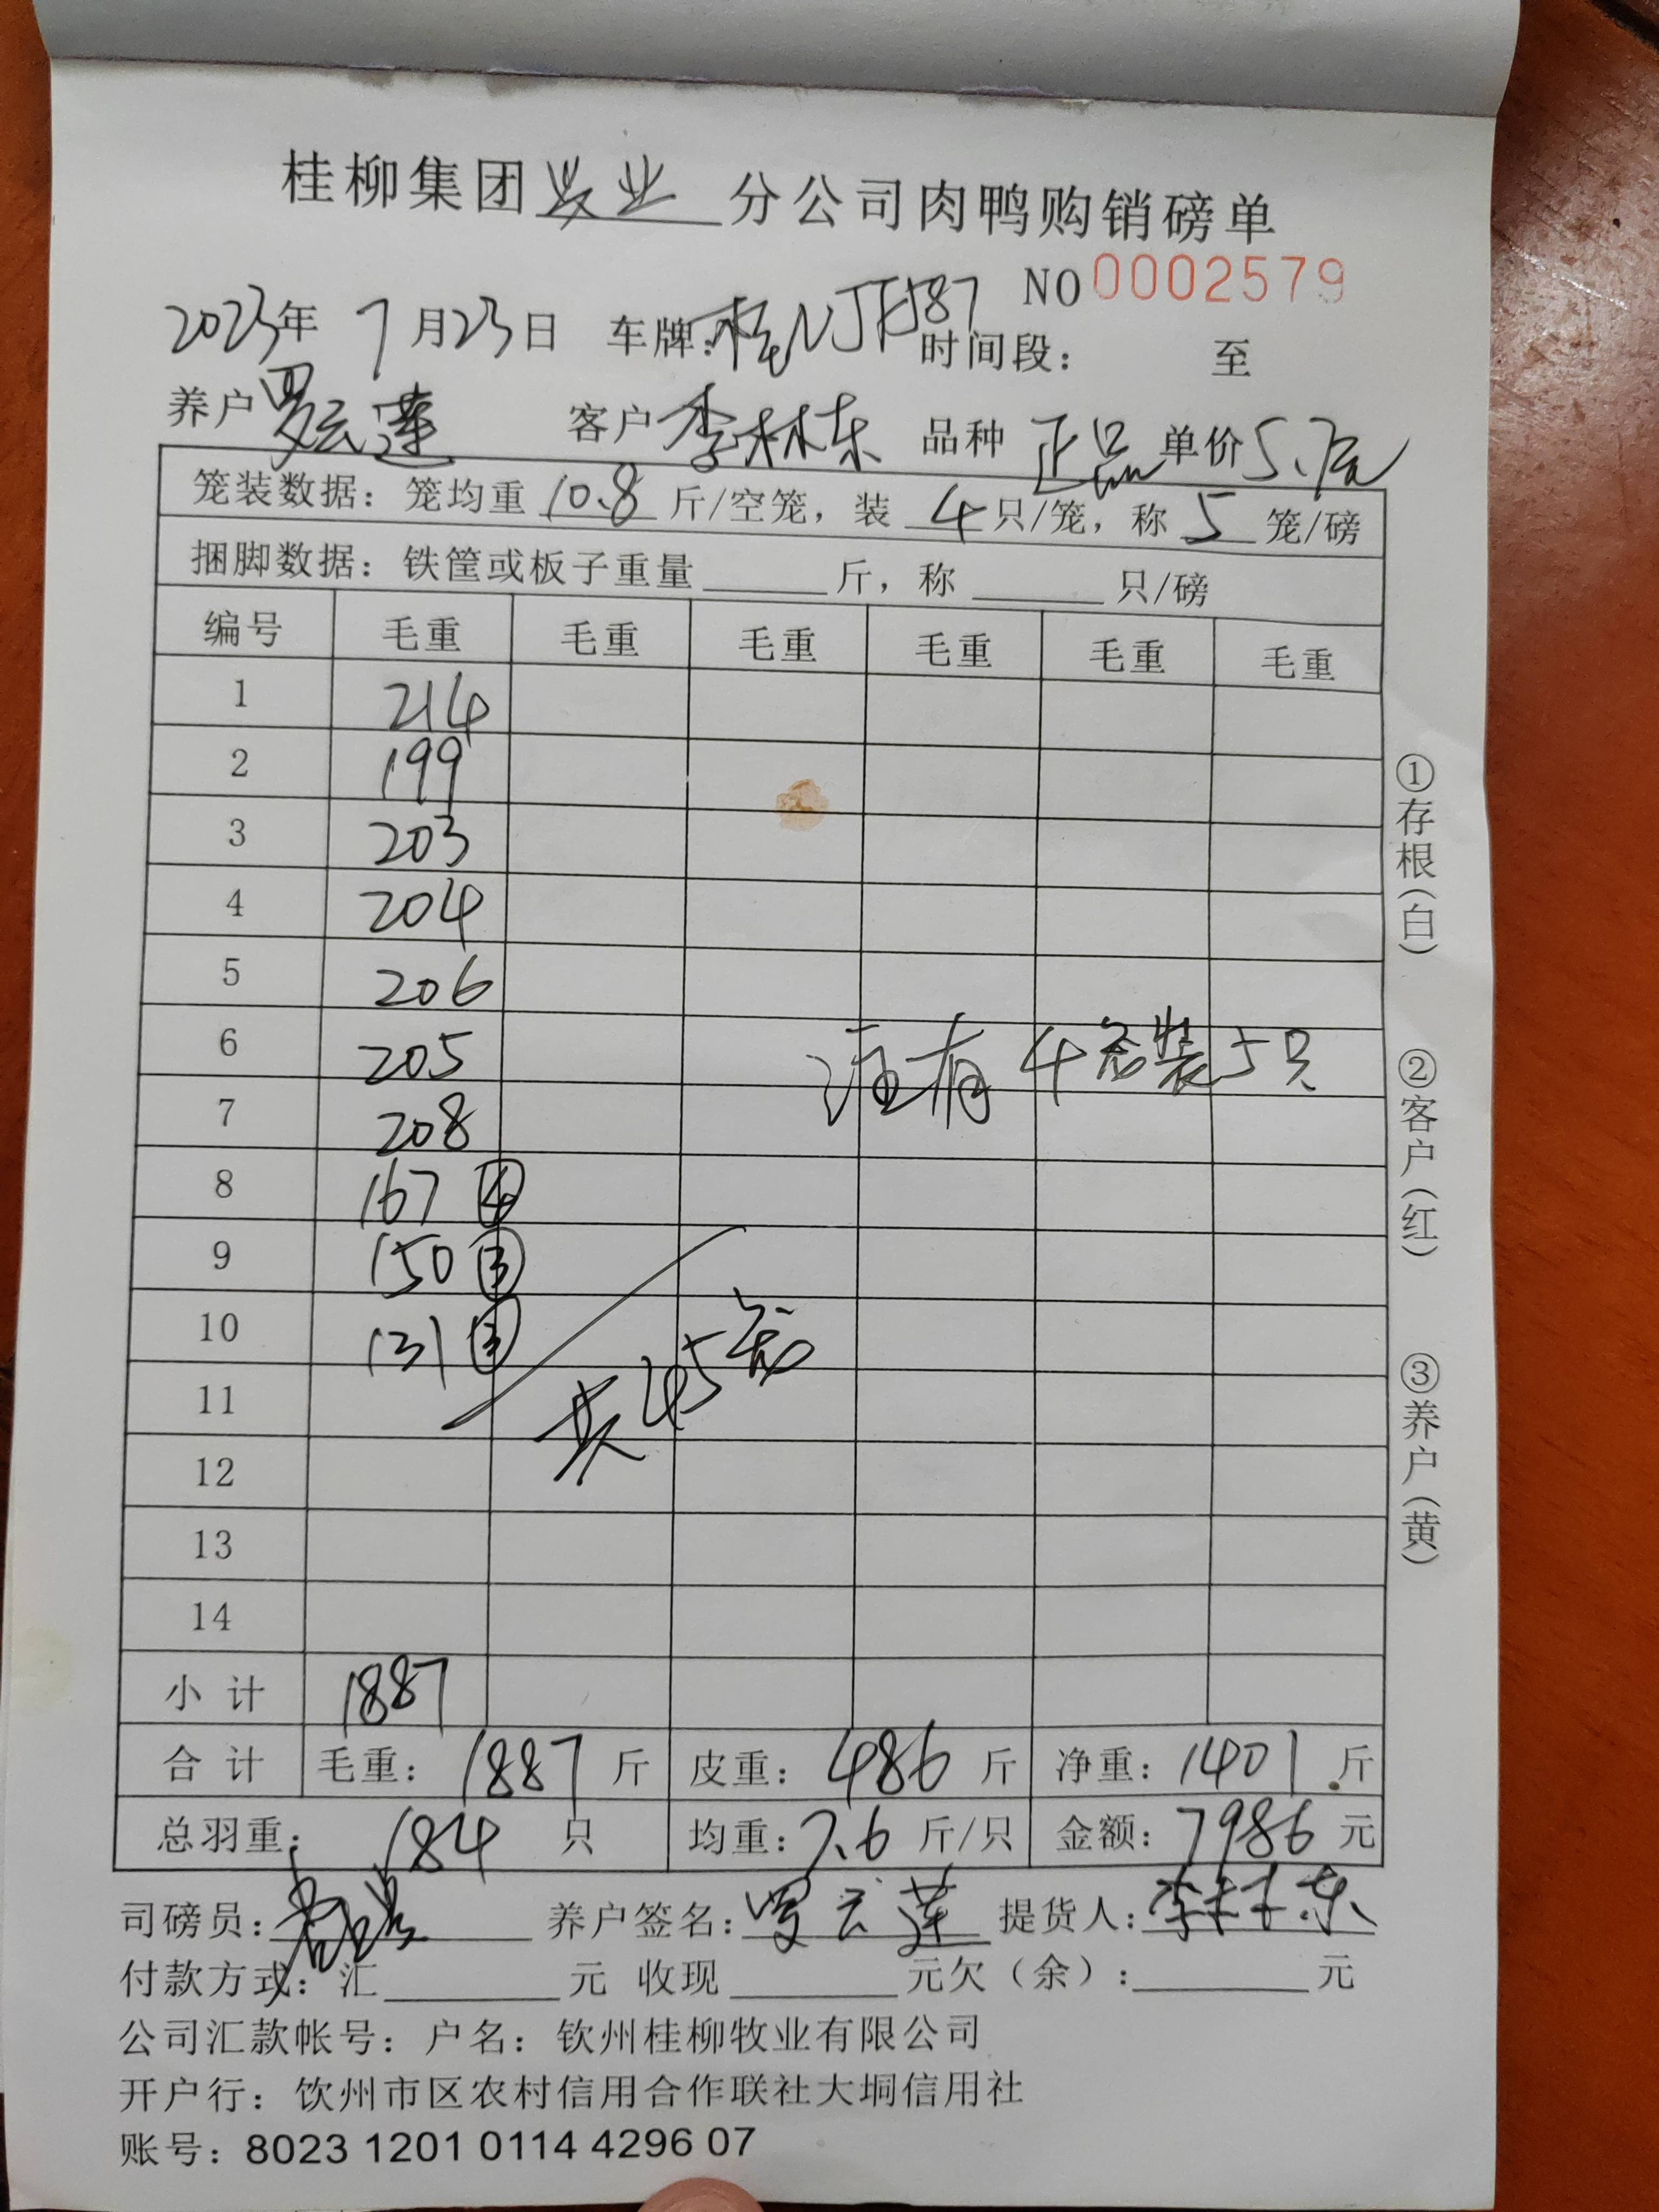 桂柳集团 业 分公司肉鸭购销磅单
NO 0002579
2023年 7月23日 车牌: 时间段: 至
养户 罗云莲 客户 李林东 品种 正品 单价 5.7元
笼装数据: 笼均重 10.8 斤/空笼, 装 4 只/笼, 称 5 笼/磅
捆脚数据: 铁筐或板子重量 斤, 称 只/磅
编号 毛重 毛重 毛重 毛重 毛重 毛重
1 214
2 199
3 203
4 204
5 206
6 205 注有4笼装5只
7 208
8 167 ④
9 150 ③
10 131 ③
11 共45笼
12
13
14
小计 1887
合计 毛重: 1887 斤 皮重: 486 斤 净重: 1401 斤
总羽重: 184 只 均重: 7.6 斤/只 金额: 7986 元
司磅员: 养户签名: 罗云莲 提货人: 李林东
付款方式: 汇 元 收现 元欠(余): 元
公司汇款帐号: 户名: 钦州桂柳牧业有限公司
开户行: 饮州市区农村信用合作联社大垌信用社
账号: 8023 1201 0114 4296 07
①存根(白)
②客户(红)
③养户(黄)